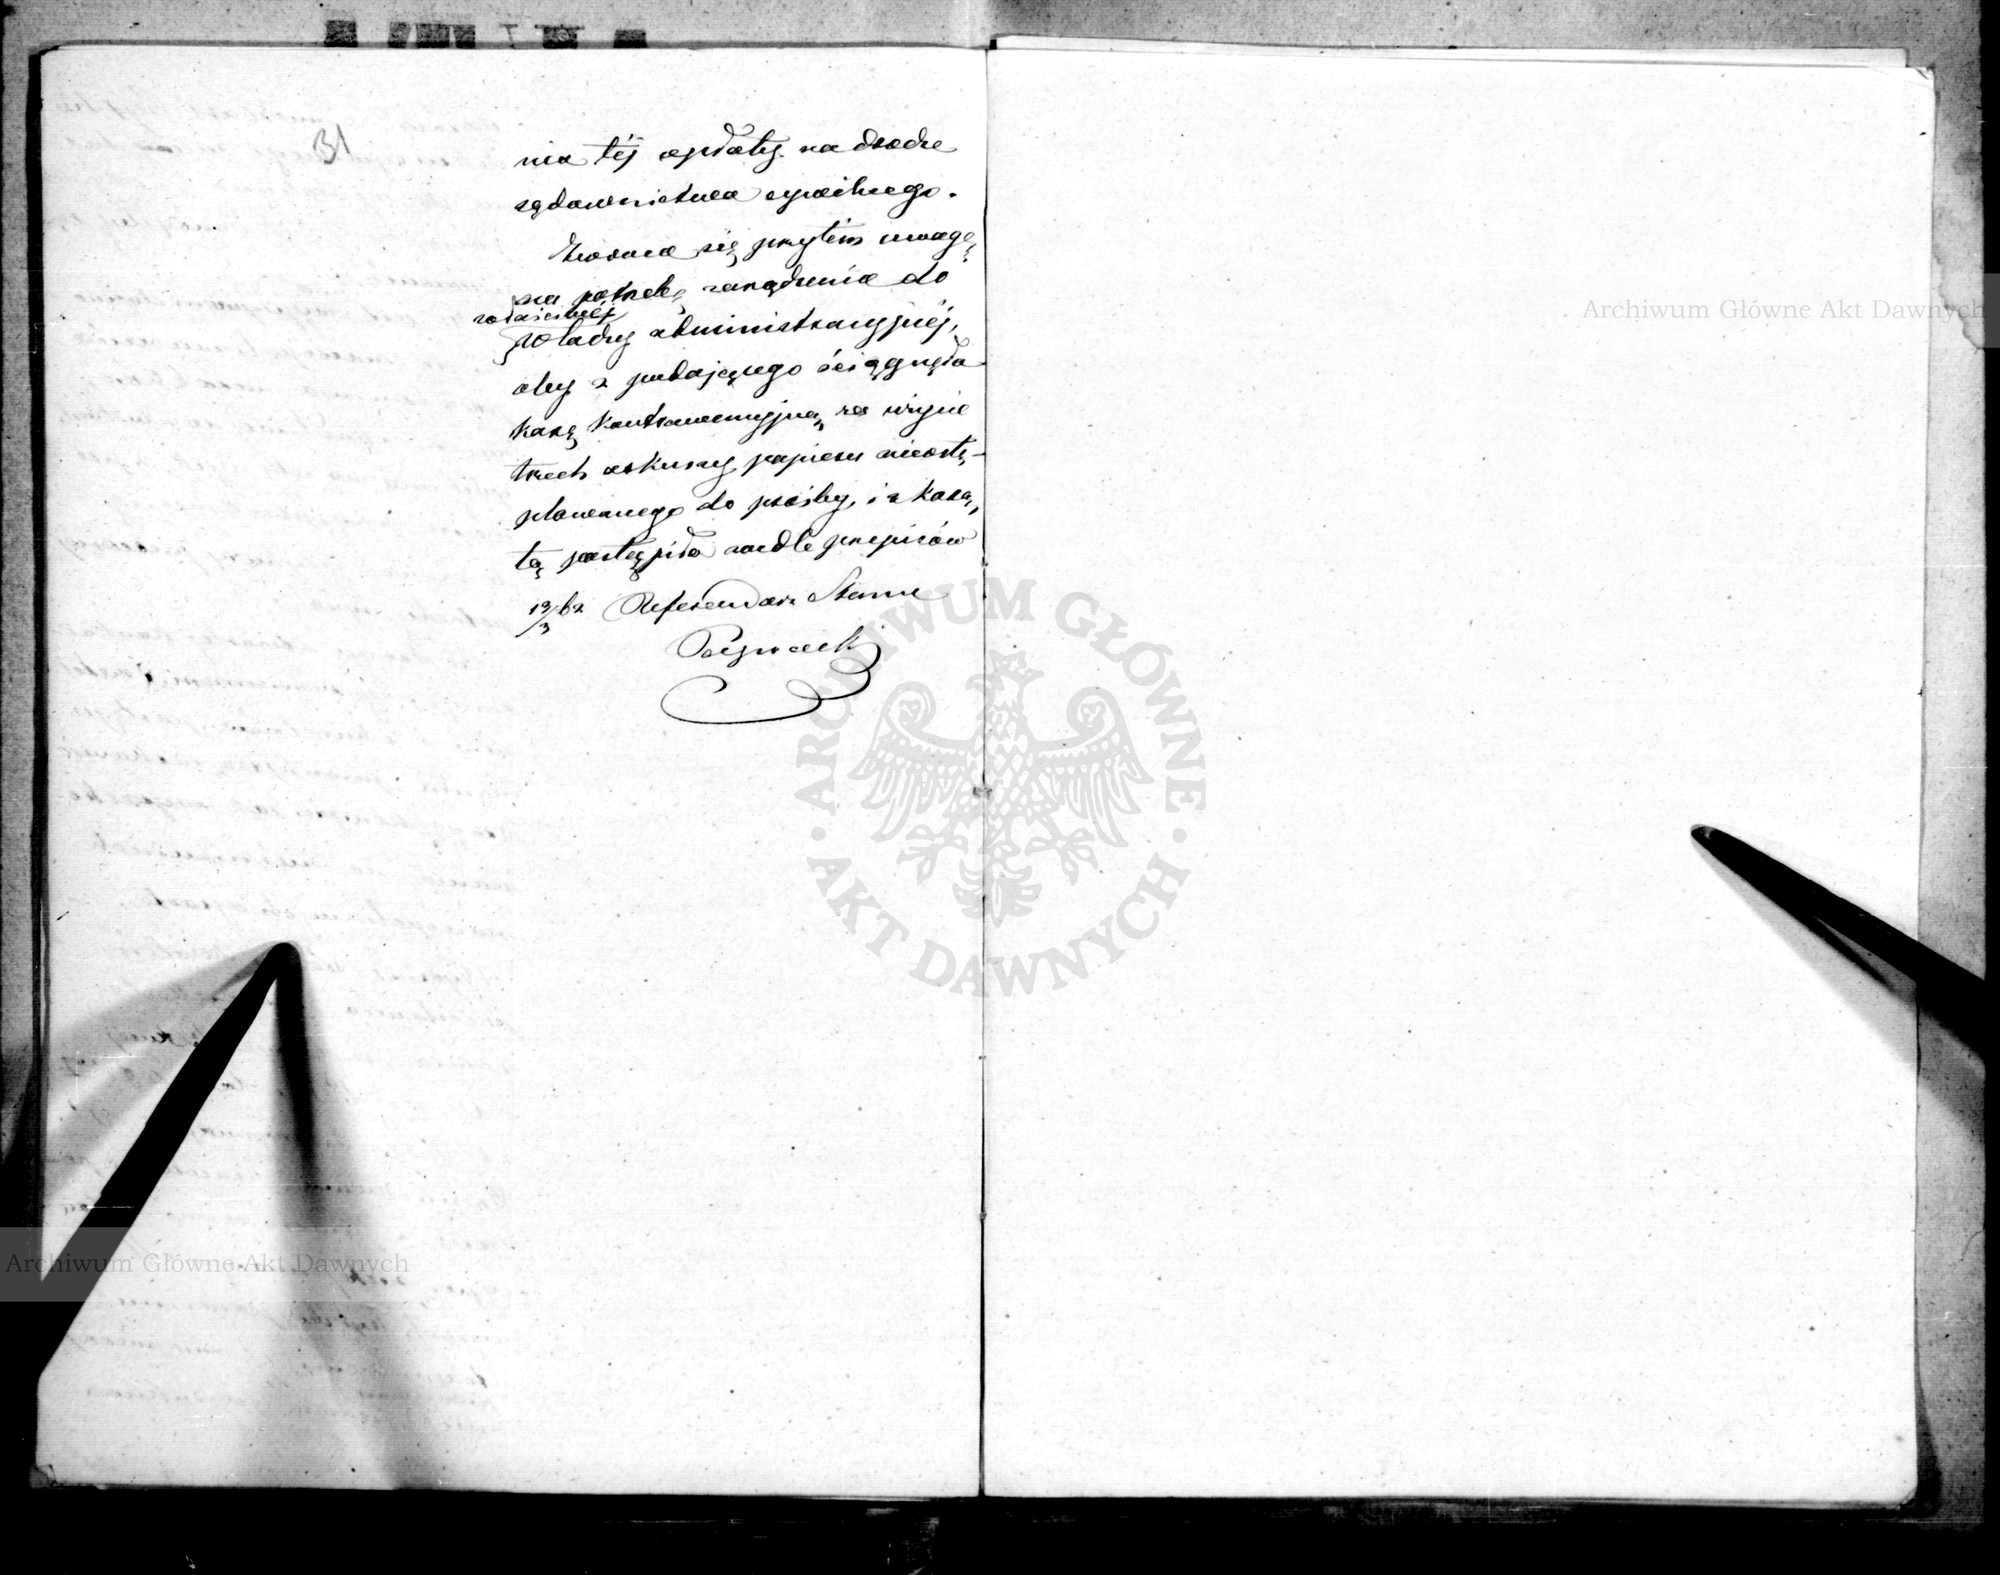 31
nia téj opłaty na drodze
sądownictwa cywilnego.
Zwraca się przytém uwagę
na potrzebę zarządzenia do
właściwéj
władzy administracyjnéj,
aby z podającego ściągnęła
karę kontrawencyjną za użycie
trzech arkuszy papieru niestę-
plowanego do prośby, i z karą
tą postąpiła wedle przepisów
19/3 62 Referendarz Stanu
Archiwum Główne Akt Dawnych
Archiwum Główne Akt Dawnych
ARCHIWUM GŁÓWNE
AKT DAWNYCH